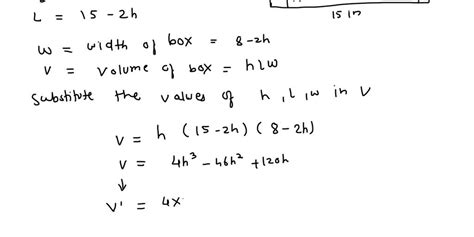 15 in
L = 15 - 2h
w = width of box = 8-2h
v = volume of box = hlw
Substitute the values of h, l, w in V
v = h (15-2h) (8-2h)
v = 4h³ - 46h² + 120h
↓
v' = 4x